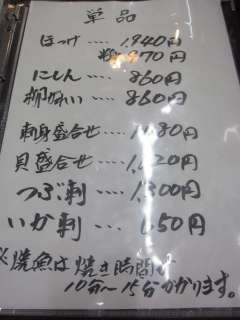 単品
ほっけ‥‥1,940円
970円
にしん‥‥860円
柳かれい‥‥860円
刺身盛合せ‥‥
貝盛合せ‥‥
つぶ刺‥‥1,300円
いか刺‥‥650円
※焼魚は焼き時間が
10分〜15分かかります。